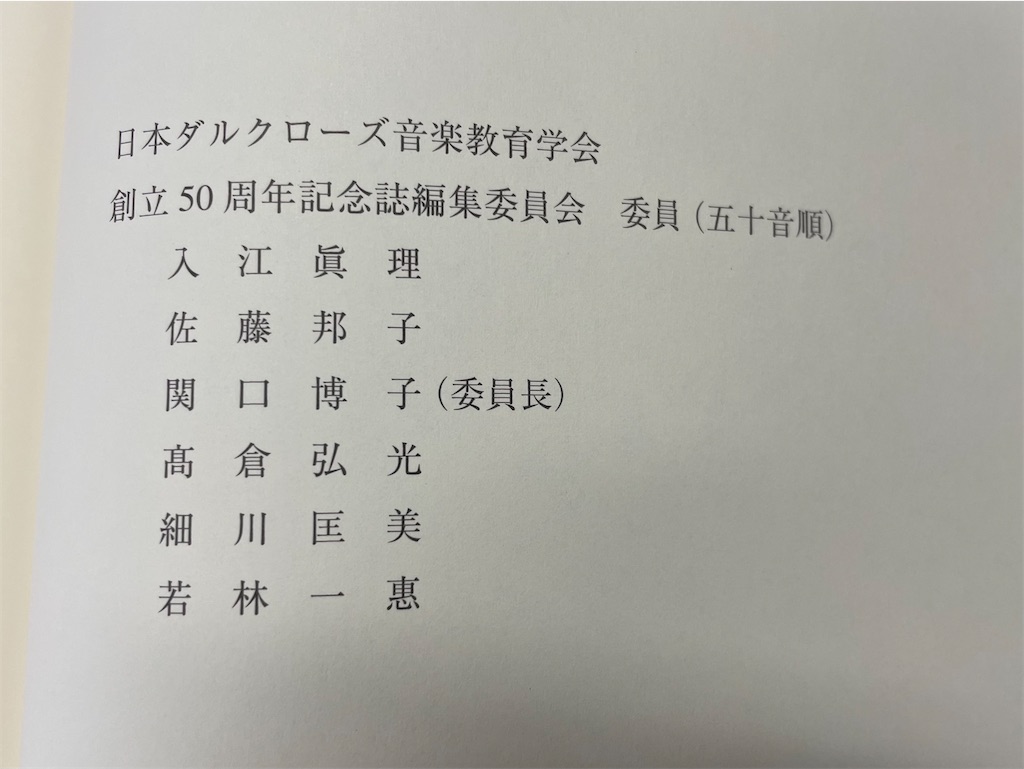 日本ダルクローズ音楽教育学会
創立50周年記念誌編集委員会　委員（五十音順）
入　江　眞　理
佐　藤　邦　子
関　口　博　子（委員長）
髙　倉　弘　光
細　川　匡　美
若　林　一　惠